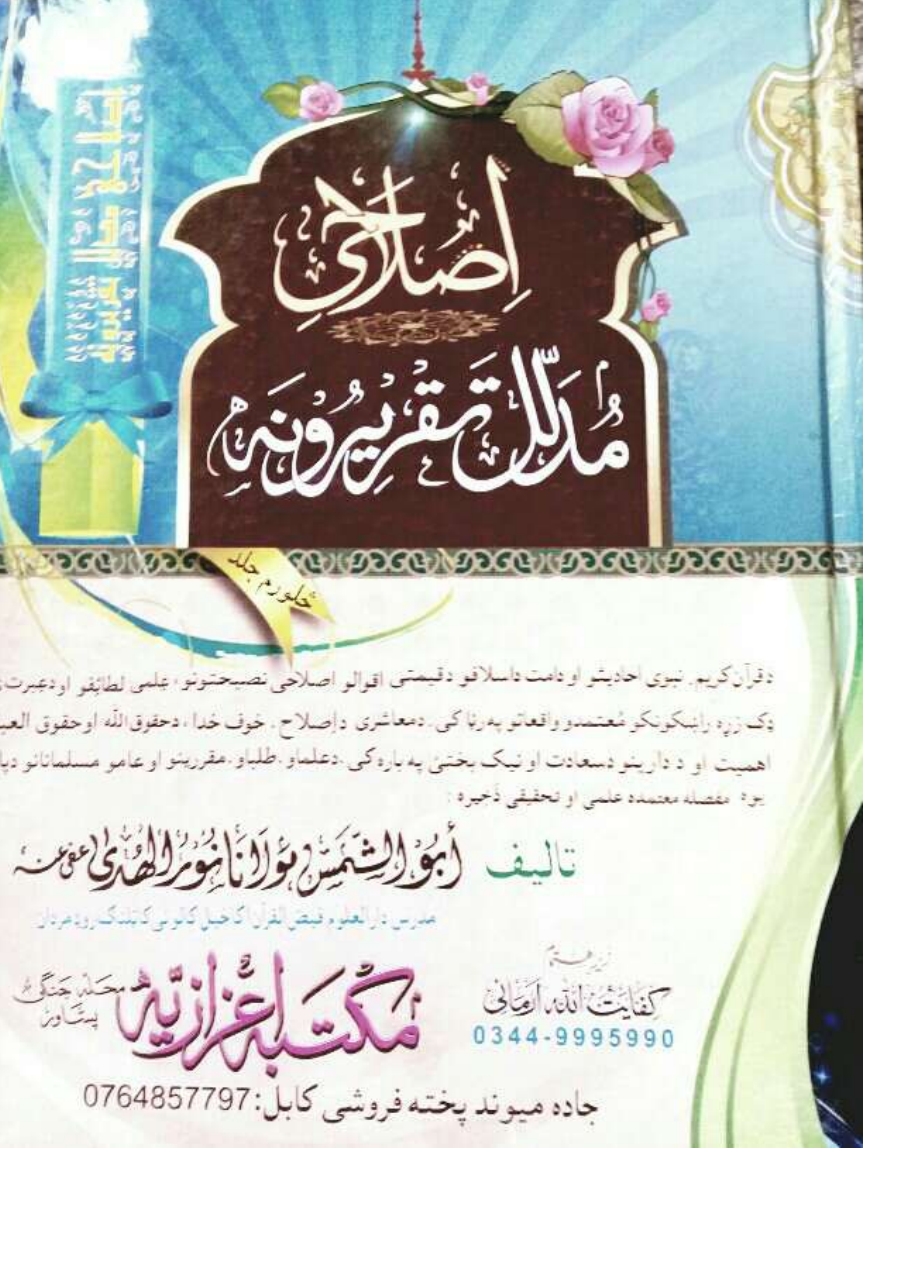 اِصْلَاحِی
مُدَلَّلْ تَقْرِیرُوْنَه
اصلاحی مدلل تقریرونه
څلورم جلد
دقرآن کریم. نبوی احادیثو او دامت داسلافو دقیمتی اقوالو اصلاحی نصیحتونو، علمی لطائفو او دعبرت
ډک زړه راښکونکو مُعتمدو واقعاتو په رڼا کی. دمعاشری داِصلاح. خوف خدا، دحقوق الله او حقوق
اهمیت او د دارینو دسعادت او نیک بختئ په باره کی. دعلماو. طلباو. مقررینو او عامو مسلمانانو
یوه مفصله معتمده علمی او تحقیقی ذخیره :
تالیف أَبُوْ الشَّمَسْ مَوْلَانَا نُوْرُ الْهُدٰی عفی عنه
مدرس دارالعلوم فیض القرآن اکاخیل کالونی کاټلنګ روډ مردان
زیر اهتمام
کفایت الله آرمانی
0344-9995990
مکتبه اِعْزَازِیَّه محله جنګی پشاور
جاده میوند پخته فروشی کابل:0764857797